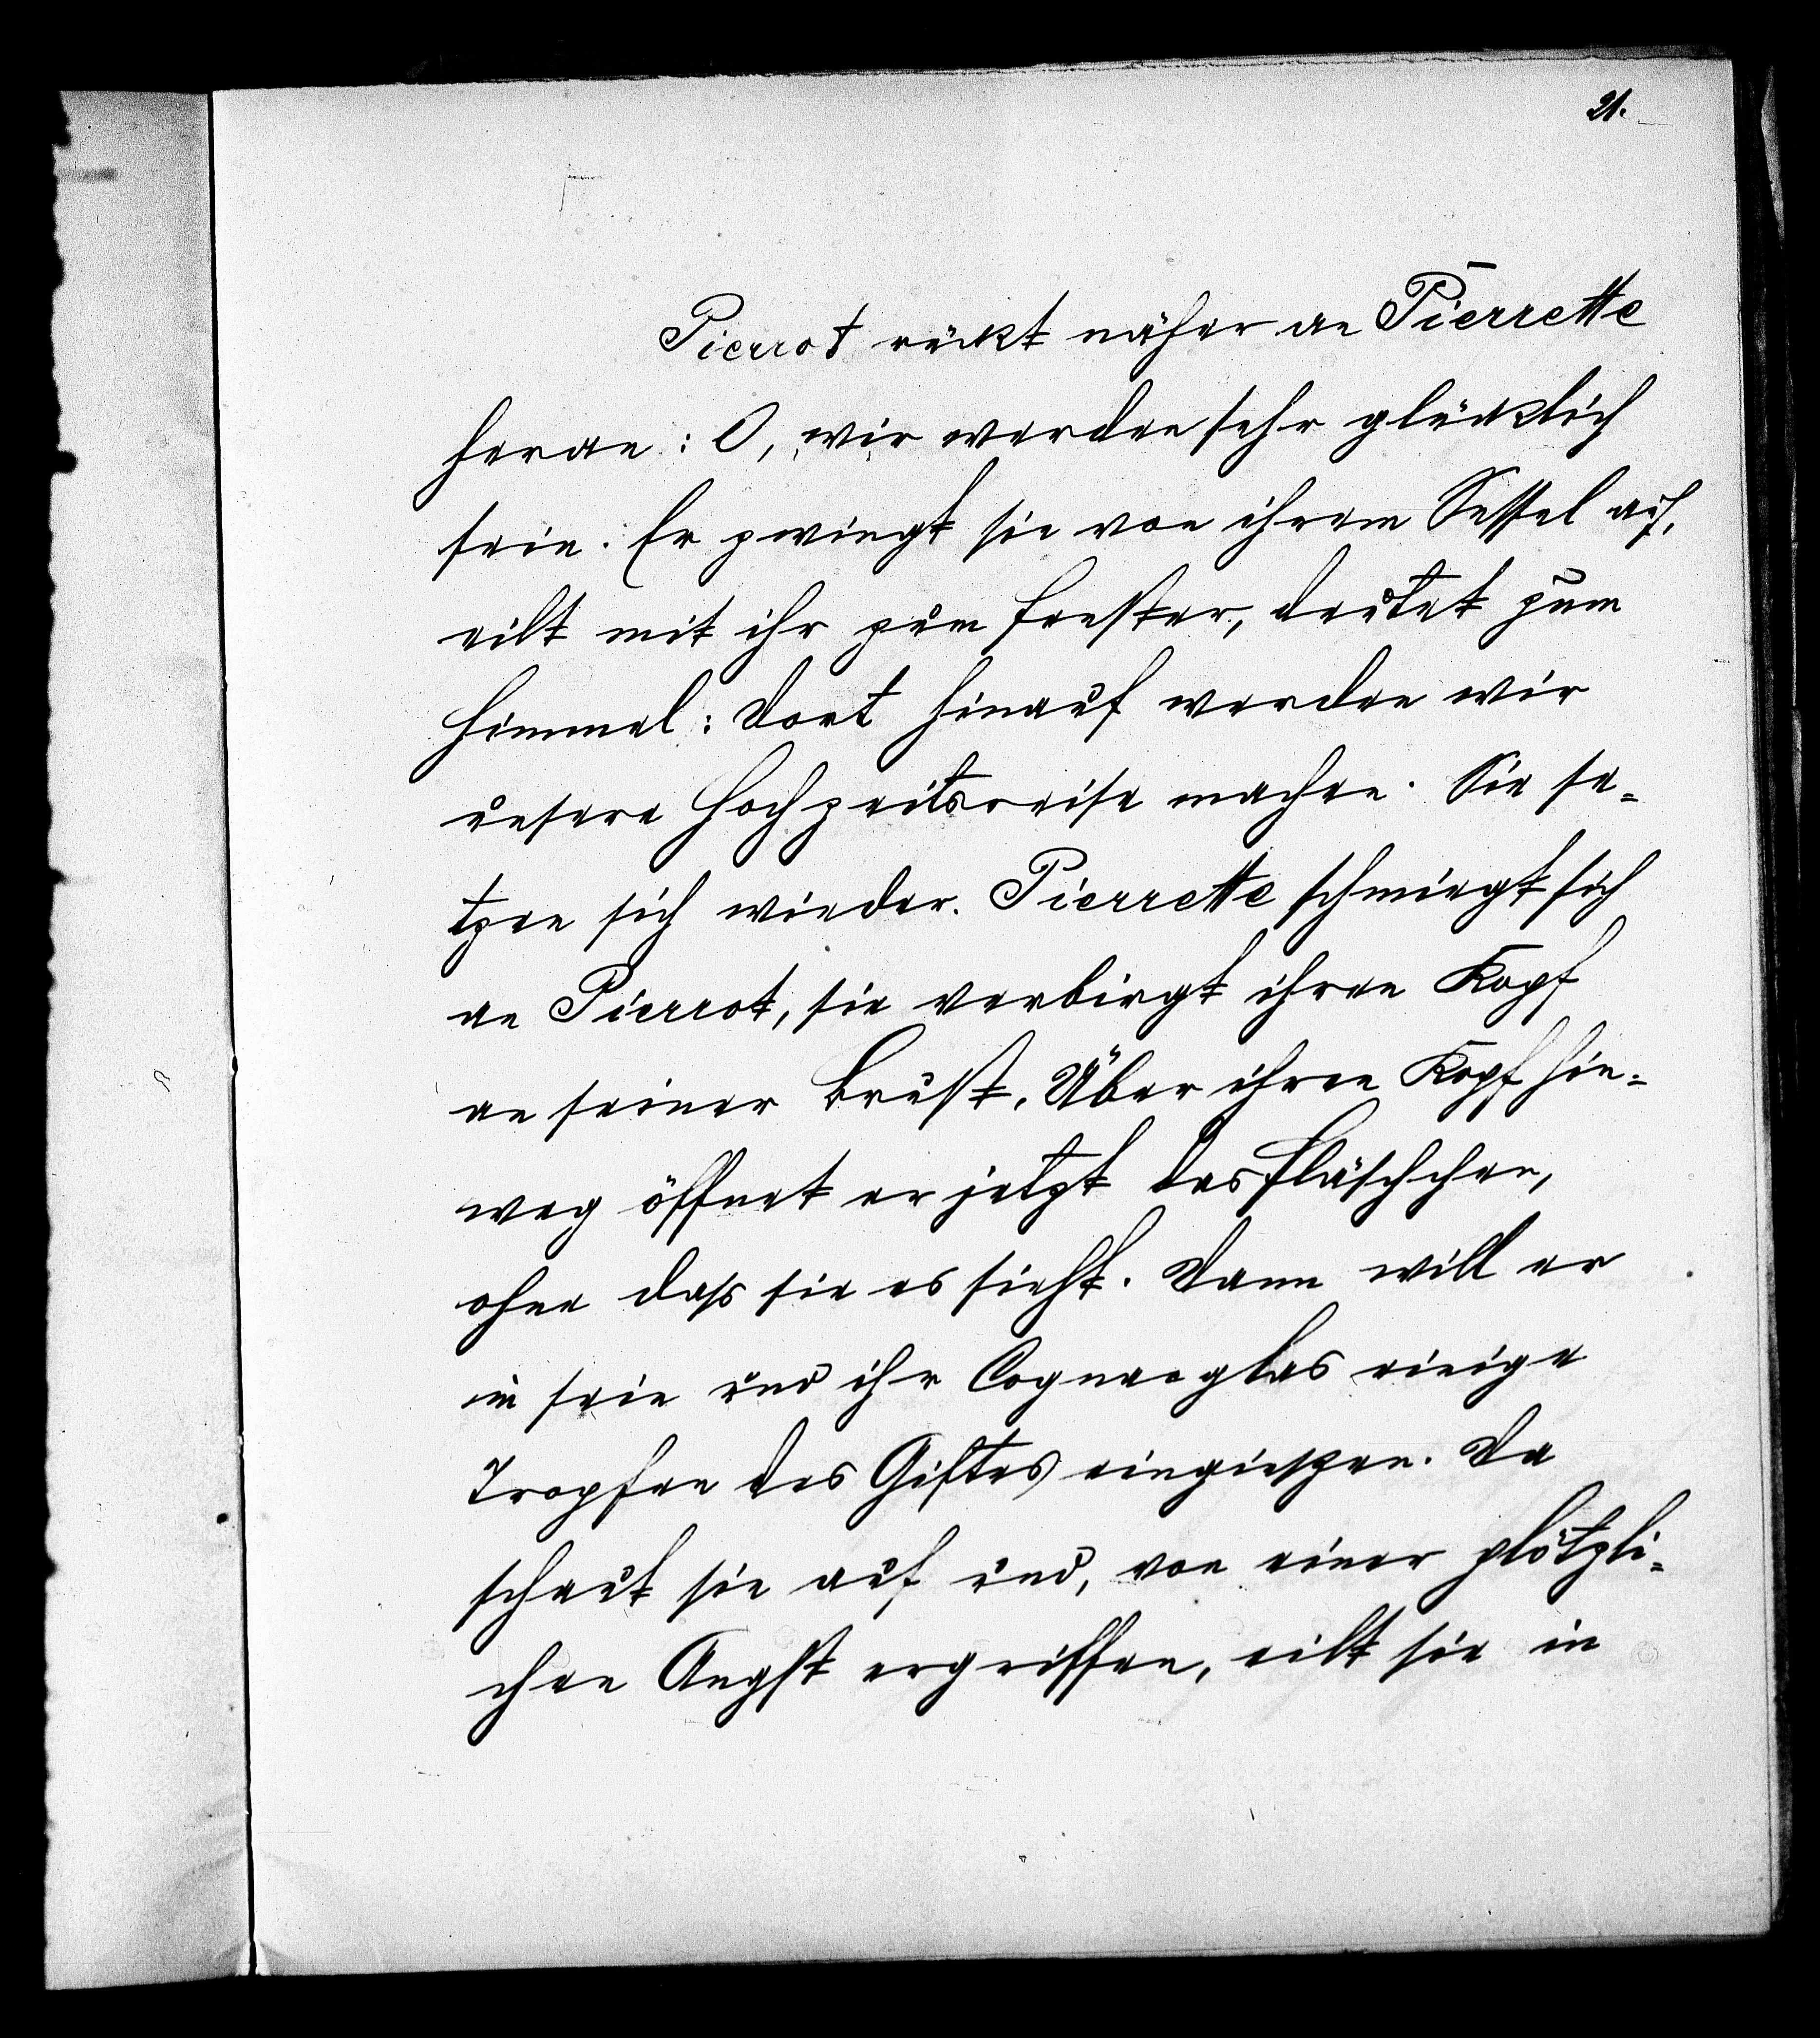 21.
Pierrot rückt näher an Pierrette
heran: O, wir werden sehr glücklich
sein. Er zwingt sie von ihrem Sessel auf,
eilt mit ihr zum Fenster, deutet zum
Himmel: Dort hinauf werden wir
unsere Hochzeitsreise machen. Sie se=
tzen sich wieder. Pierrette schmiegt sich
an Pierrot, sie verbirgt ihren Kopf
an seiner Brust. Über ihren Kopf hin=
weg öffnet er jetzt das Fläschchen,
ohne daß sie es sieht. Dann will er
in sein und ihr Cognacglas einige
Tropfen des Giftes eingießen. Da
schaut sie auf und, von einer plötzli=
chen Angst ergriffen, eilt sie in